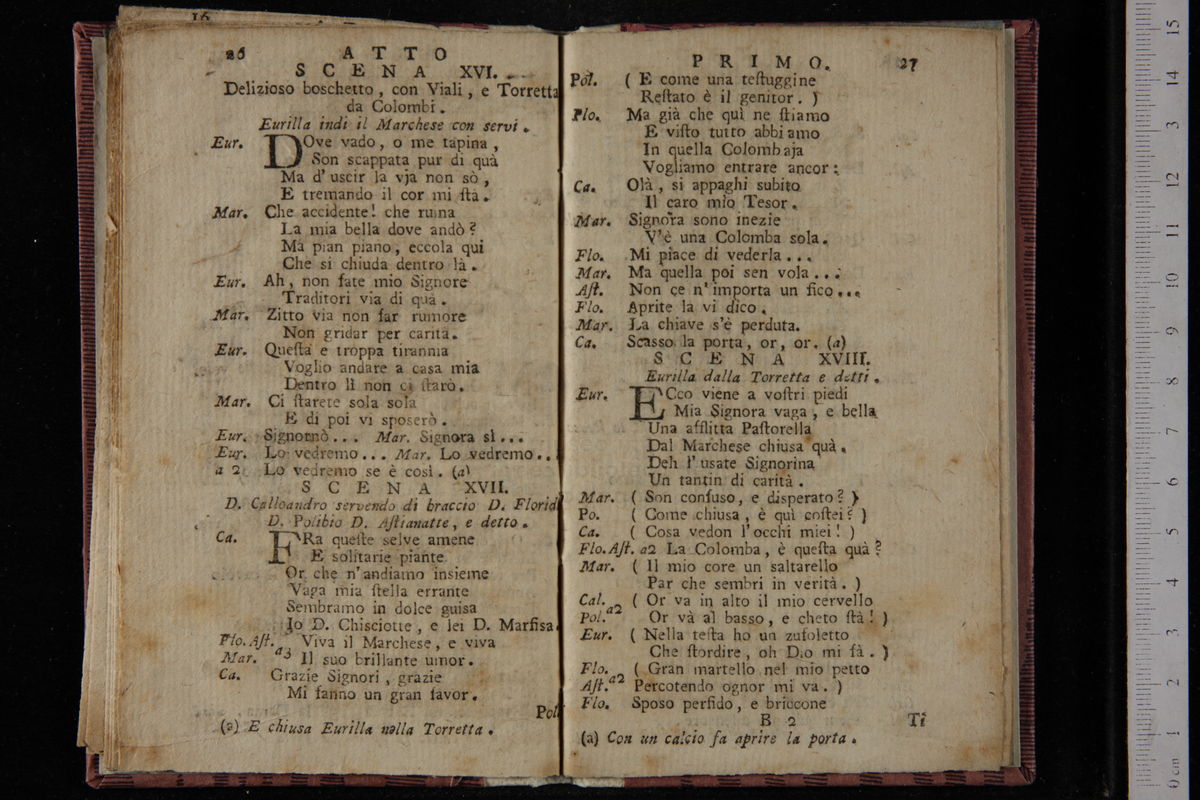 16
26 ATTO
SCENA XVI.
Delizioso boschetto, con Viali, e Torretta
da Colombi.
Eurilla indi il Marchese con servi.
Eur. DOve vado, o me tapina,
Son scappata pur di quà
Ma d' uscir la vja non sò,
E tremando il cor mi ſtà.
Mar. Che accidente! che ruina
La mia bella dove andò?
Ma pian piano, eccola qui
Che si chiuda dentro là.
Eur. Ah, non fate mio Signore
Traditori via di quà.
Mar. Zitto via non far rumore
Non gridar per carità.
Eur. Queſta e troppa tirannia
Voglio andare a casa mia
Dentro lì non ci ſtarò.
Mar. Ci ſtarete sola sola
E di poi vi sposerò.
Eur. Signornò... Mar. Signora sì...
Eur. Lo vedremo... Mar. Lo vedremo..
a 2 Lo vedremo se è così. (a)
SCENA XVII.
D. Calloandro servendo di braccio D. Florid
D. Polibio D. Aſtianatte, e detto.
Ca. FRa queſte selve amene
E solitarie piante
Or che n' andiamo insieme
Vaga mia ſtella errante
Sembramo in dolce guisa
Io D. Chisciotte, e lei D. Marfisa.
Flo. Aſt. Viva il Marchese, e viva
Mar. a3 Il suo brillante umor.
Ca. Grazie Signori, grazie
Mi fanno un gran favor.
Pol
(a) E chiusa Eurilla nella Torretta.
PRIMO. 27
Pol. (E come una teſtuggine
Reſtato è il genitor.)
Flo. Ma già che quì ne ſtiamo
E viſto tutto abbiamo
In quella Colombaja
Vogliamo entrare ancor:
Ca. Olà, si appaghi subito
Il caro mio Tesor.
Mar. Signora sono inezie
V'è una Colomba sola.
Flo. Mi piace di vederla...
Mar. Ma quella poi sen vola...
Aſt. Non ce n' importa un fico...
Flo. Aprite là vi dico.
Mar. La chiave s'è perduta.
Ca. Scasso la porta, or, or. (a)
SCENA XVIII.
Eurilla dalla Torretta e detti.
Eur. ECco viene a voſtri piedi
Mia Signora vaga, e bella
Una afflitta Paſtorella
Dal Marchese chiusa quà.
Deh l' usate Signorina
Un tantin di carità.
Mar. (Son confuso, e disperato?)
Po. (Come chiusa, è quì coſtei?)
Ca. (Cosa vedon l' occhi miei!)
Flo. Aſt. a2 La Colomba, è queſta quà?
Mar. (Il mio core un saltarello
Par che sembri in verità.)
Cal. (Or va in alto il mio cervello
Pol. a2 Or và al basso, e cheto ſtà!)
Eur. (Nella teſta ho un zufoletto
Che ſtordire, oh Dio mi fà.)
Flo. (Gran martello nel mio petto
Aſt. a2 Percotendo ognor mi va.)
Flo. Sposo perfido, e briccone
B 2 Ti
(a) Con un calcio fa aprire la porta.
0 cm 1 2 3 4 5 6 7 8 9 10 11 12 13 14 15